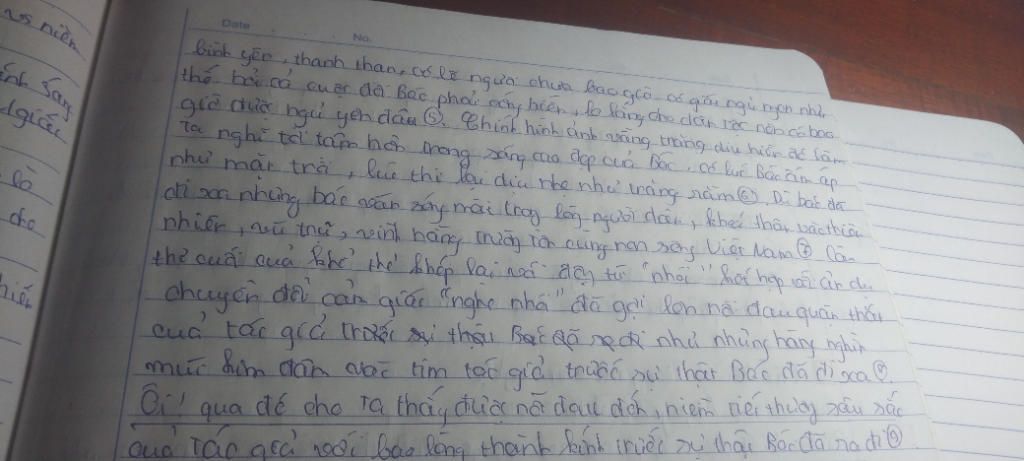 Date No.
bình yên, thanh thản, có lẽ người chưa bao giờ có giấc ngủ ngon như
thế bởi cả cuộc đời Bác phải cống hiến, lo lắng cho dân tộc nên có bao
giờ được ngủ yên đâu (5). Chính hình ảnh vầng trăng dịu hiền đã làm
ta nghĩ tới tâm hồn trong sáng cao đẹp của Bác, có lúc Bác ấm áp
như mặt trời, lúc thì lại dịu nhẹ như trăng rằm (6). Dù bác đã
đi xa nhưng bác vẫn sống mãi trong lòng người dân, khắc thân vào thiên
nhiên, vũ trụ, vĩnh hằng trường tồn cùng non sông Việt Nam (7). Câu
thơ cuối của khổ thơ khép lại với động từ "nhói" kết hợp với ẩn dụ
chuyển đổi cảm giác "nghe nhói" đã gợi lên nỗi đau quặn thắt
của tác giả trước sự thật Bác đã ra đi như những hàng nghìn
mũi kim đâm vào tim tác giả trước sự thật Bác đã đi xa (8).
Ôi! qua đó cho ta thấy được nỗi đau đớn, niềm tiếc thương sâu sắc
của tác giả với bao lòng thành kính trước sự thật Bác đã ra đi (9)
vs niên
ánh sáng
là
cho
hiến